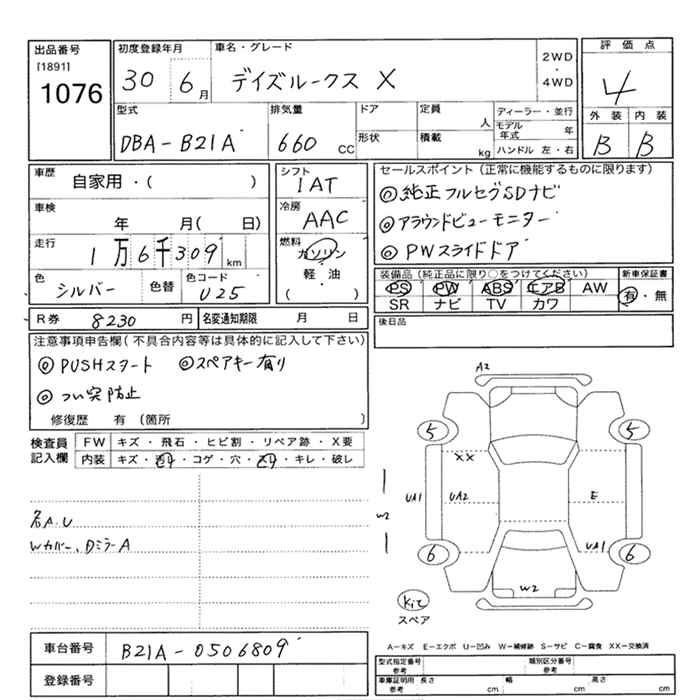 出品番号
[1891]
1076
初度登録年月
30 6月
車名・グレード
デイズルークス X
2WD
・
4WD
評価点
4
外装 内装
B B
型式
DBA-B21A
排気量
660 CC
ドア
形状
定員
人
積載
kg
ディーラー・並行
モデル年式 年
ハンドル 左・右
車歴
自家用・( )
車検
年 月( 日)
走行
1万6千309 km
色
シルバー
色替
色コード
U25
シフト
IAT
冷房
AAC
燃料
ガソリン
・
軽油
( )
セールスポイント(正常に機能するものに限ります)
◎純正フルセグSDナビ
◎アラウンドビューモニター
◎PWスライドドア
装備品(純正品に限り○をつけてください)
PS PW ABS エアB AW
SR ナビ TV カワ
新車保証書
有・無
R券 8230 円
名変通知期限 月 日
後日品
注意事項申告欄(不具合内容等は具体的に記入して下さい)
◎PUSHスタート ◎スペアキー有り
◎つい突防止
修復歴 有(箇所 )
検査員
記入欄
FW キズ・飛石・ヒビ割・リペア跡・X要
内装 キズ・汚れ・コゲ・穴・スレ・キレ・破レ
名A.U
Wカバー、DミラーA
A2
5 5
XX
UA1 UA2 E
W2
UA1
6 6
W2
kit
スペア
A-キズ E-エクボ U-凹み W-補修跡 S-サビ C-腐食 XX-交換済
車台番号 B21A-0506809
登録番号
型式指定番号
参考
類別区分番号
参考
車庫証明用
参考
長さ cm 幅 cm 高さ cm